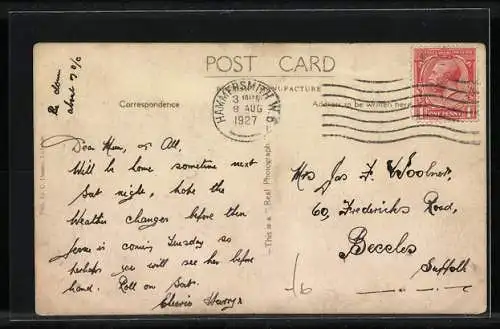 POST CARD
Correspondence
Address to be written here
HAMMERSMITH. W.6
8 AUG
1927
ONE PENNY
This is a "Real Photograph"
Dear Mum, & All.
Will be home sometime next
Sat night, hope the
Weather changes before then
is coming Tuesday so
perhaps you will see her before
hand. Roll on Sat.
Cheerio Harry x
Mrs Jas F. Woolnor,
60, Fredericks Road,
Beccles
Suffolk
1/6